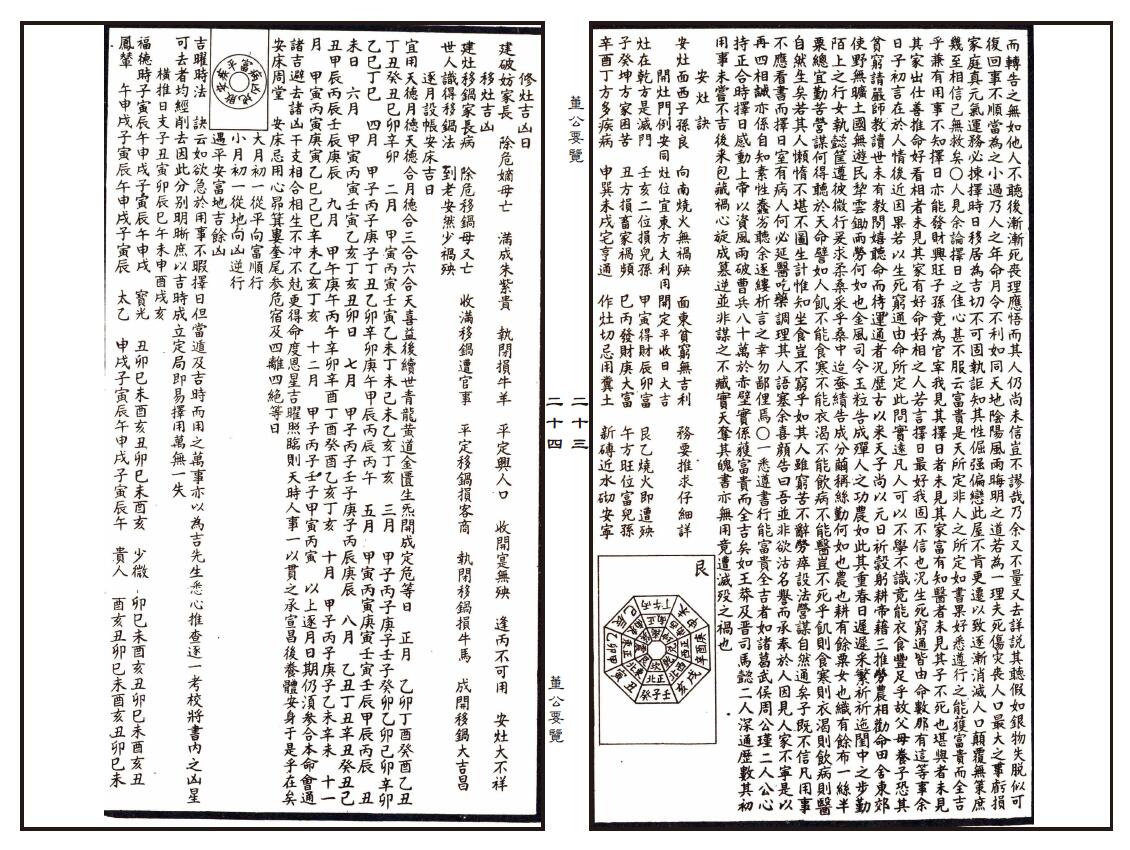 董公要覽
而轉告之無如他人不聽後漸漸死喪理應悟而其人仍尚未信豈不謬哉乃余又不量又去詳説其聽假如銀物失脱似可
復回事不順當為之小過乃人之年命月令不利如同天地陰陽風雨晦明之道若為一理夫死傷災喪人口最大之事虧損
家庭真元氣運務必揀擇時日移居為吉切不可固執詎知其性倔强偏戀此屋不肯更遷以致逐漸消滅人口顛覆無策庶
幾至相信已無救矣〇人見余論擇日之佳心甚不服云富貴是天所定非人之所定如書果好悉遵行之能獲富貴而全吉
乎兼有用事不知擇日亦能發財興旺子孫竟為官宰我見其擇日者未見其家富有知醫者未見其子不死也堪輿者未見
其家出仕善推命好看相者未見其家有好命好相之人若言擇日最好我固不信也況生死窮通皆由命數那有這等事余
日子初言在於人情後近因果若以生死窮通由命所定此問實遠凡人可以不學不識竟能衣食豐足乎故父母養子恐其
貧窮請嚴師教讀世未有教問嬉聽命而待運通者況歷古以來天子尚以元日祈穀躬耕帝藉三推勞農相勸命田舍東郊
使野無曠土國無遊民犂雲鋤雨勞何如也金風司令玉粒告成彈人之功農如此其重春日遲遲采蘩祈祈迤閨中之步勤
陌上之行女執懿筐遵彼微行爰求柔桑采乎桑中迄蚕績告成分繭稱絲勤何如也農也耕有餘粟女也織有餘布一絲半
粟總宜勤苦營謀何得聽於天命譬如人飢不能食寒不能衣渴不能飲病不能醫豈不死乎飢則食寒則衣渴則飲病則醫
自然生矣若其人懶惰不堪不圖生計惟知坐食豈不窮乎如其人雖窮苦不辭勞瘁設法營謀自然通矣子既不信凡用事
不應看書而擇日室有病人何必延醫吃藥調理其人語塞余喜顏告曰吾並非欲沽名譽而承奉於人因見人家不寧是以
再四相誡亦係自知素性蠢劣聽余逐縷析言之幸勿鄙俚焉〇一悉遵書行能富貴全吉者如諸葛武侯周公瑾二人公心
持正合時擇日感動上帝以資風雨破曹兵八十萬於赤壁實係獲富貴而全吉矣如王莽及晋司馬懿二人深通歷數其初
用事未嘗不吉後來包藏禍心旋成篡逆並非謀之不臧實天奪其魄書亦無用竟遭滅歿之禍也
安灶訣
安灶面西子孫良　向南燒火無禍殃　面東貧窮無吉利　務要推求仔細詳
開灶門例安同灶位宜東方大利用開定平收日大吉
灶在乾方是滅門　壬亥二位損兒孫　甲寅得財辰卯富　艮乙燒火即遭殃
子癸坤方家困苦　丑方損畜家禍頻　巳丙發財庚大富　午方旺位富兒孫
辛酉丁方多疾病　申巽未戌宅亨通　作灶切忌用糞土　新磚近水砌安寧
艮
二十三
二十四
董公要覽
修灶吉凶日
建破妨家長　除危嫡母亡　滿成朱紫貴　執閉損牛羊　平定興人口　收開寔無殃　逢丙不可用　安灶大不祥
移灶吉凶
建灶移鍋家長病　除危移鍋母又亡　收滿移鍋遭官事　平定移鍋損客商　執閉移鍋損牛馬　成開移鍋大吉昌
世人識得移鍋法　到老安然少禍殃
逐月設帳安床吉日
宜用天德月德天德合月德合三合六合天喜益後續世青龍黄道金匱生炁開成定危等日　正月　乙卯丁酉癸酉乙丑
丁丑癸丑己卯辛卯　二月　甲寅丙寅壬寅乙未丁未己未乙亥丁亥　三月　甲子丙子庚子壬子癸卯乙卯己卯辛卯
乙巳丁巳　四月　甲子丙子庚子丁丑乙卯辛卯庚午甲辰丙辰丙午　五月　甲寅丙寅庚寅壬寅壬辰甲辰丙辰　丑
未日　六月　甲寅丙寅壬寅乙亥丁亥丑卯日　七月　甲子丙子壬子庚子丙辰庚辰　八月　乙丑丁丑辛丑癸丑己
丑甲辰丙辰壬辰庚辰　九月　甲午庚午丙午辛卯辛酉丁酉癸酉乙亥丁亥　十月　甲子丙子庚子乙未辛未　十一
月　甲寅丙寅庚寅乙巳己巳辛未乙亥丁亥　十二月　甲子丙子壬子甲寅丙寅　以上逐月日期仍須参合本命會通
諸吉避去諸凶干支相合相生不冲不尅更得命度恩星吉曜照臨則天時人事一以貫之承宣昌後養體安身于是乎在矣
安床周堂　安床忌用心昴箕婁奎尾参危宿及四離四絶等日
大月初一從平向富順行
小月初一從地向凶逆行
遇平安富地吉餘凶
吉曜時法　訣云如欲急於用事不暇擇日但當遁及吉時而用之萬事亦以為吉先生悉心推查逐一考校將書内之凶星
可去者均經削去因此分别明晰庶以吉時成立定局即易擇用萬無一失
横推日支子丑寅卯辰巳午未申酉戌亥
福德時子寅辰午申戌子寅辰午申戌　寳光　丑卯巳未酉亥丑卯巳未酉亥　少微　卯巳未酉亥丑卯巳未酉亥丑
鳳輦　午申戌子寅辰午申戌子寅辰　太乙　申戌子寅辰午申戌子寅辰午　貴人　酉亥丑卯巳未酉亥丑卯巳未
董公要覽